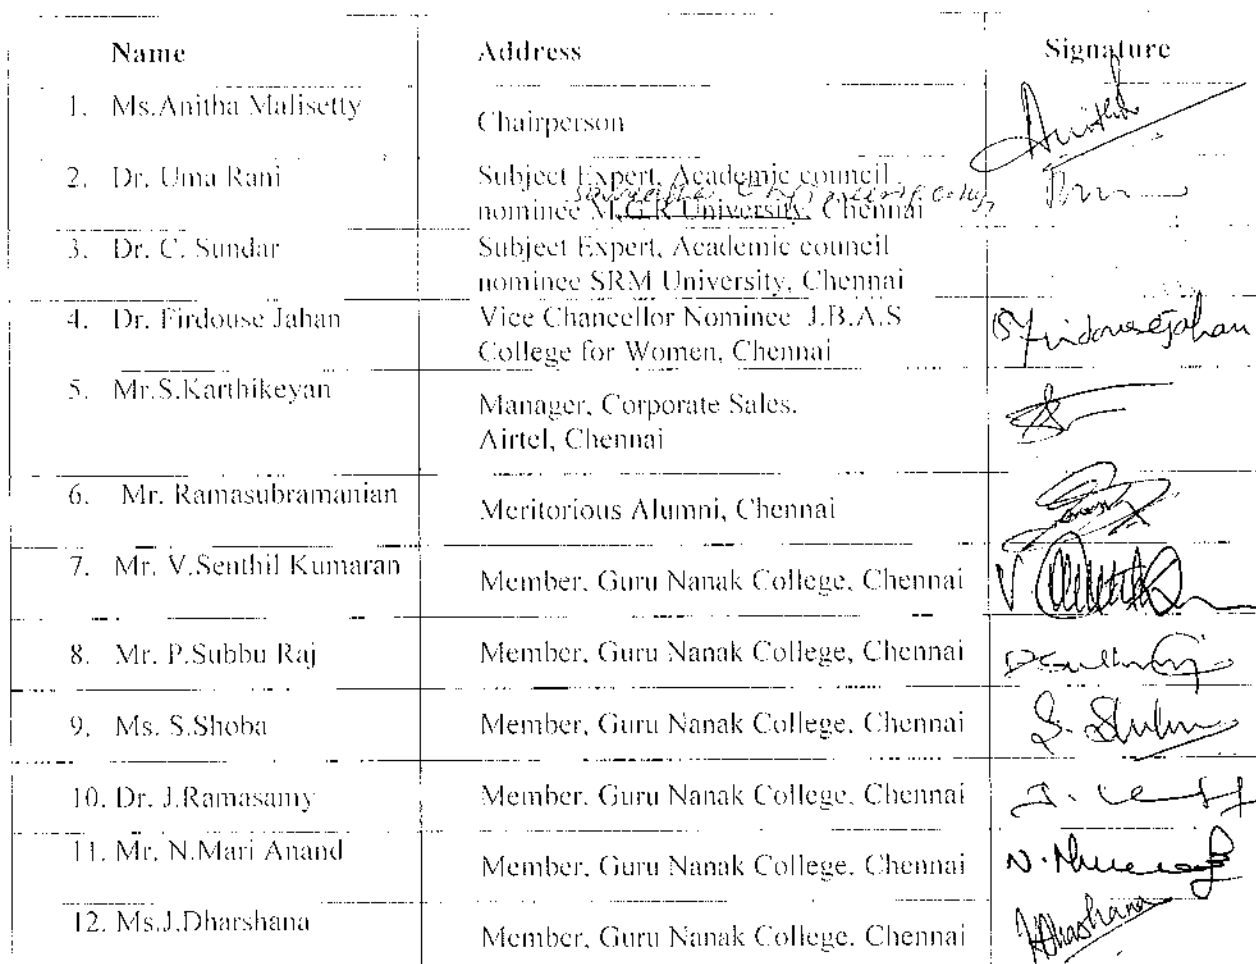 Name Address Signature
1. Ms.Anitha Malisetty Chairperson Anitha
2. Dr. Uma Rani Subject Expert, Academic council
nominee M.G.R University, Chennai
3. Dr. C. Sundar Subject Expert, Academic council
nominee SRM University, Chennai
4. Dr. Firdouse Jahan Vice Chancellor Nominee J.B.A.S Firdouse Jahan
College for Women, Chennai
5. Mr.S.Karthikeyan Manager, Corporate Sales.
Airtel, Chennai
6. Mr. Ramasubramanian Meritorious Alumni, Chennai
7. Mr. V.Senthil Kumaran Member, Guru Nanak College, Chennai
8. Mr. P.Subbu Raj Member, Guru Nanak College, Chennai
9. Ms. S.Shoba Member, Guru Nanak College, Chennai
10. Dr. J.Ramasamy Member, Guru Nanak College, Chennai
11. Mr. N.Mari Anand Member, Guru Nanak College, Chennai
12. Ms.J.Dharshana Member, Guru Nanak College. Chennai